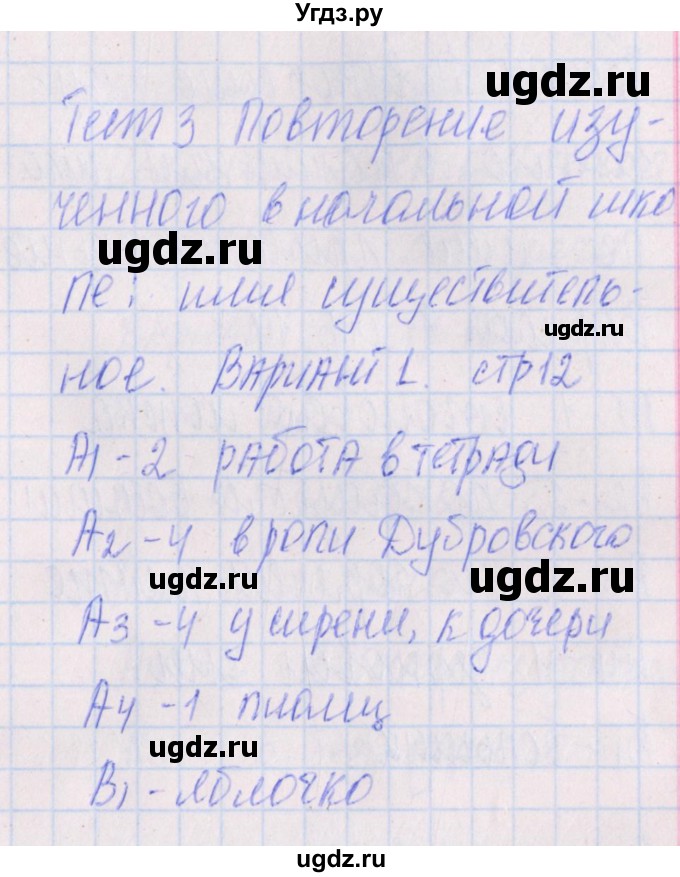 Угдз.ру
ugdz.ru
Тест 3 Повторение изу-
ченного в начальной шко
ugdz.ru
ле: имя существитель-
ugdz.ru
ное. Вариант 1. стр 12
А1 - 2 работа в тетради
А2 - 4 в роли Дубровского
ugdz.ru ugdz.ru
А3 - 4 у сирени, к дочери
А4 - 1
ugdz.ru
В1 - яблочко
ugdz.ru